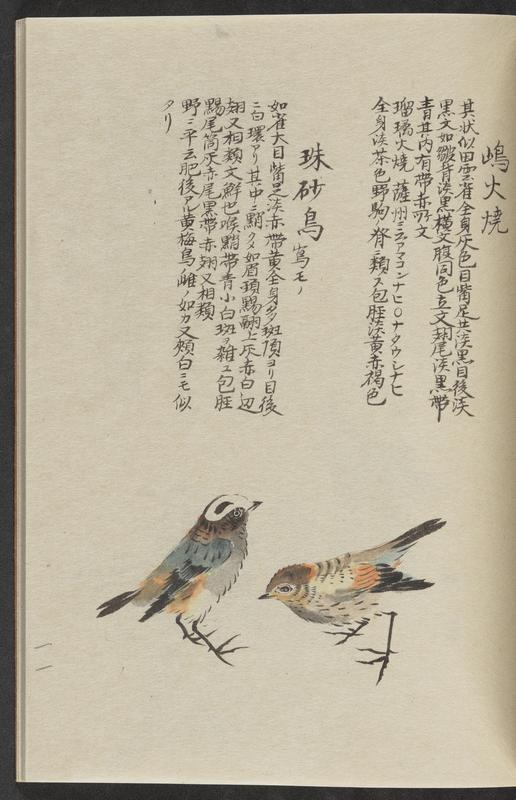 嶋火焼
其状似田雲雀全身灰色目觜足共淡黒目後淡
黒文如皺背淡黒横文腹同色立文翅尾淡黒帯
青其内有帯赤所文
瑠璃火焼 薩州ニテアマコンナヒ〇ナタウシナヒ
全身淡茶色野駒脊ニ類ス包脛淡黄赤褐色
珠砂鳥 寫モノ
如雀大目觜足淡赤帯黄全身多斑頂ヨリ目後
ニ白環アリ其中ニ黒占クメ如眉頚
翅又相類文鮮也喉黒占帯青小白斑ヲ雑ユ包脛
尾筒灰赤尾黒帯赤翅又相類
野ニ平云肥後アル黄梅鳥雌ノ如カ又頬白ニモ似
タリ